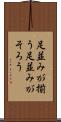 足並みが揃
う足並みが
そろう